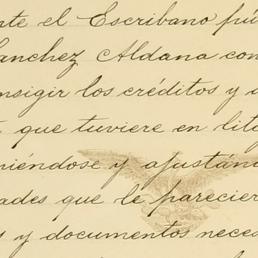 nte el Escribano pú
Sanchez Aldana con
nsigir los créditos y a
que tuviere en lit
niéndose y ajustán
ades que le parecier
s y documentos neces